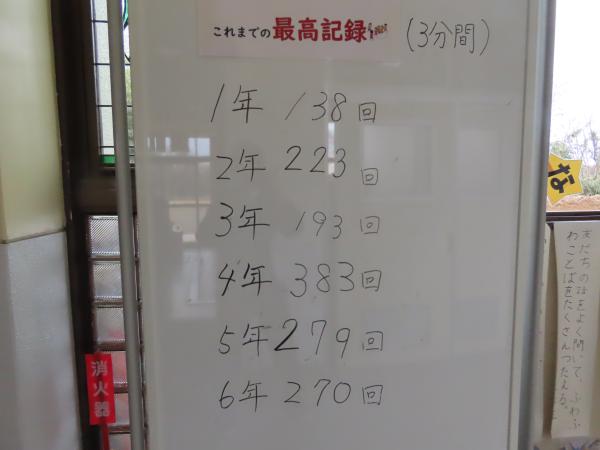 これまでの最高記録
(3分間)
1年 138回
2年 223回
3年 193回
4年 383回
5年 279回
6年 270回
消火器
な
友だちの話をよく聞いて、ふわふ
わことばをたくさんつたえる。